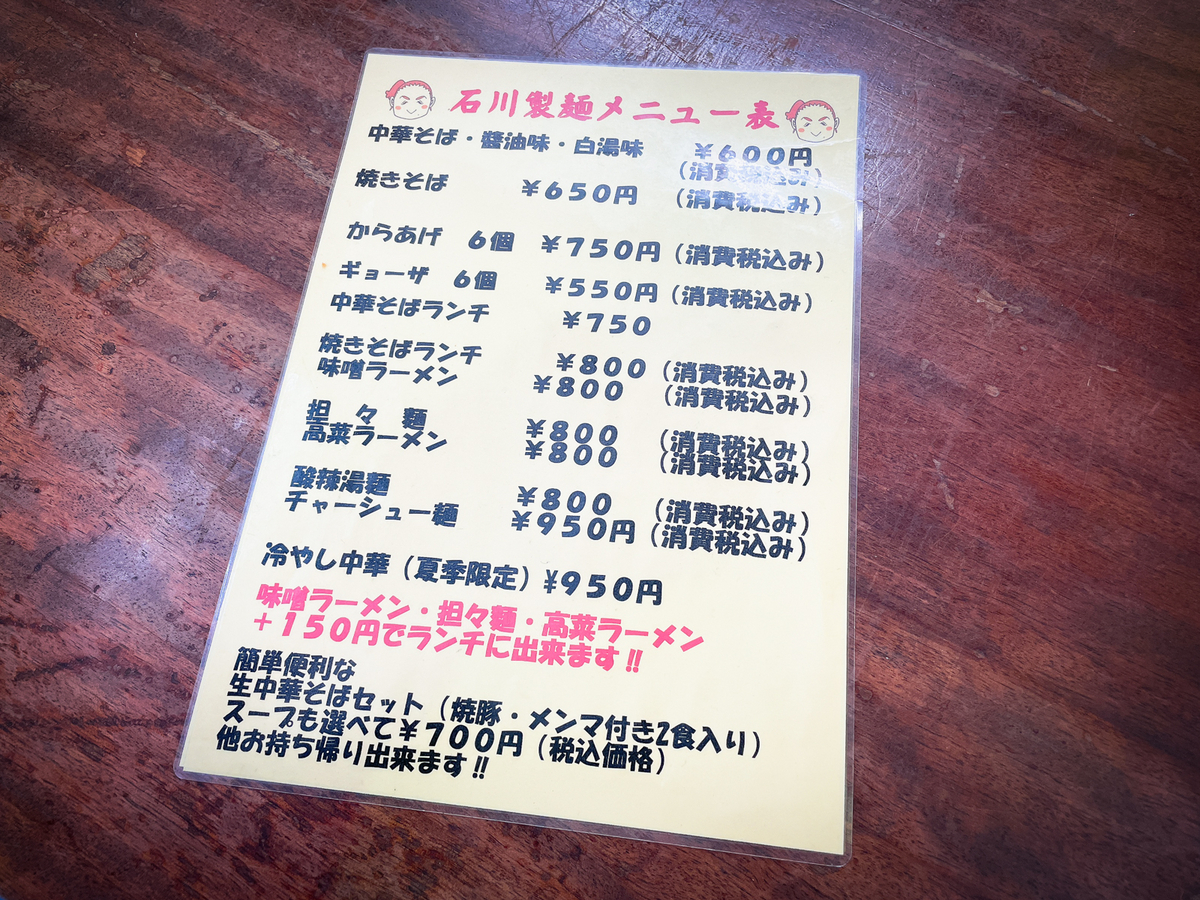 石川製麺メニュー表
中華そば・醬油味・白湯味 ￥600円
(消費税込み)
焼きそば ￥650円 (消費税込み)
からあげ 6個 ￥750円(消費税込み)
ギョーザ 6個 ￥550円(消費税込み)
中華そばランチ ￥750
焼きそばランチ ￥800(消費税込み)
味噌ラーメン ￥800 (消費税込み)
担々麺 ￥800 (消費税込み)
高菜ラーメン ￥800 (消費税込み)
酸辣湯麺 ￥800 (消費税込み)
チャーシュー麺 ￥950円(消費税込み)
冷やし中華(夏季限定)¥950円
味噌ラーメン・担々麺・高菜ラーメン
+150円でランチに出来ます!!
簡単便利な
生中華そばセット(焼豚・メンマ付き2食入り)
スープも選べて￥700円(税込価格)
他お持ち帰り出来ます!!